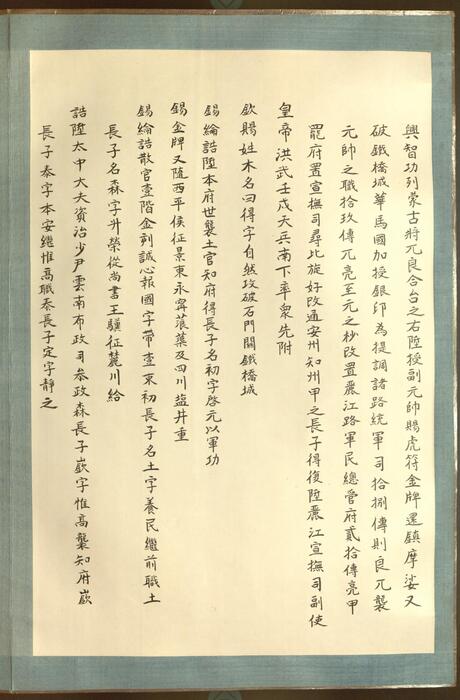 興智功列蒙古將兀良合台之右陞授副元帥賜虎符金牌還鎮摩娑又
破鐵橋城華馬國加授銀印為提調諸路統軍司拾捌傳則良兀襲
元帥之職拾玖傳兀亮至元之杪改置麗江路軍民總管府貳拾傳亮甲
罷府置宣撫司尋比旋好改通安州知州甲之長子得復陞麗江宣撫司副使
皇帝洪武壬戌天兵南下率衆先附
欽賜姓木名曰得字自然攻破石門關鐵橋城
錫綸誥陞本府世襲土官知府得長子名初字啓元以軍功
錫金牌又隨西平侯征景東永甯蒗蕖及四川盐井重
錫綸誥散官壹階金刻誠心報國字帶壹束初長子名土字養民繼前職土
長子名森字升榮從尚書王驥征麓川給
誥陞太中大夫資治少尹雲南布政司叅政森長子嶔字惟高襲知府嶔
長子泰字本安繼惟高職泰長子定字靜之